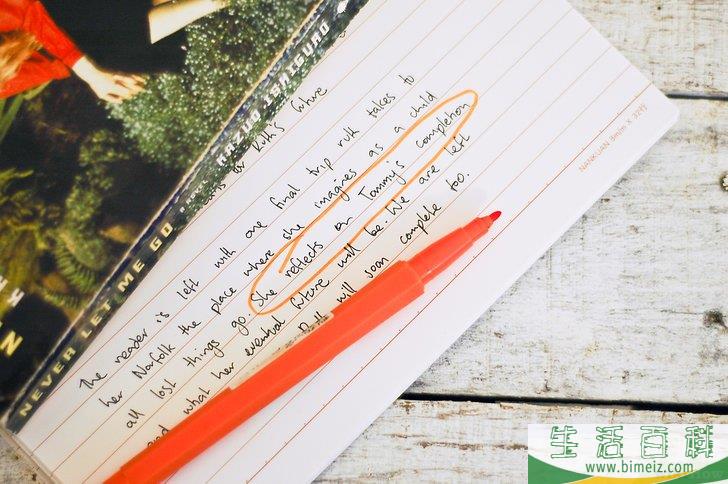 KAZUO ISHIGURO
NEVER LET ME GO
Ruth's future
The reader is left with one final trip ruth takes to
her Norfolk the place where she imagines as a child
all lost things go. She reflects on Tommy's completion
and what her eventual future will be. We are left
Ruth will soon complete too.
NANKUAN 9mm X 32行
生活百科
www.bimeiz.com